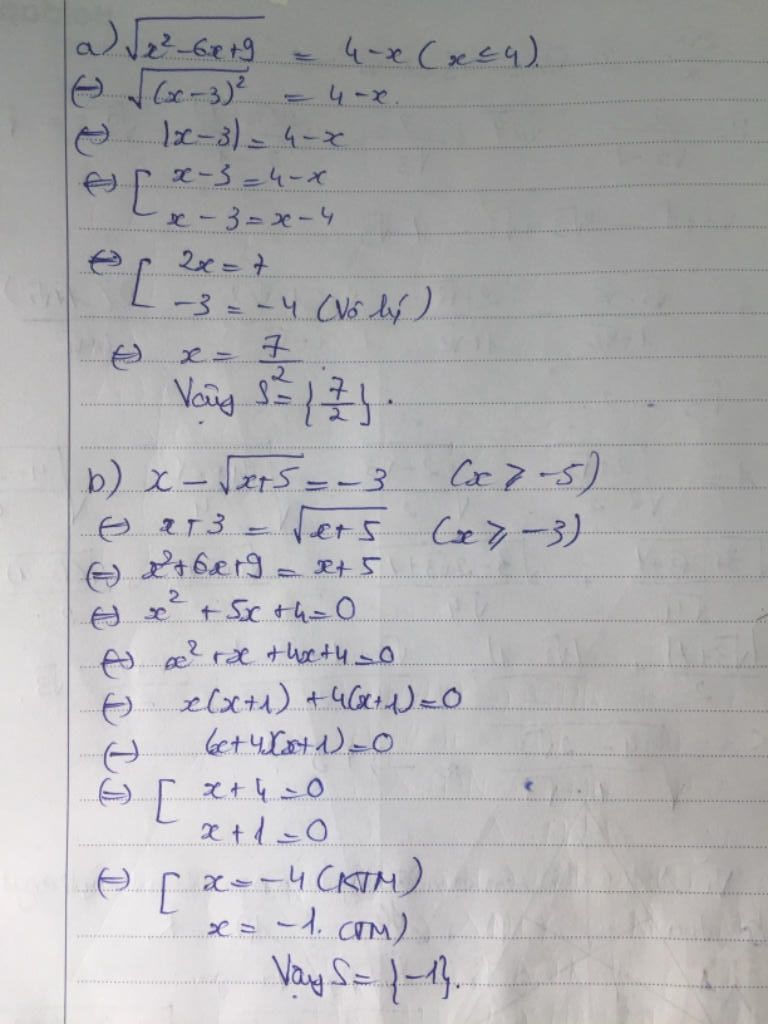 a) √(x²-6x+9) = 4-x (x≤4).
⇔ √((x-3)²) = 4-x.
⇔ |x-3| = 4-x
⇔ [ x-3=4-x
x-3=x-4
⇔ [ 2x=7
-3=-4 (Vô lý)
⇔ x = 7/2.
Vậy S={7/2}.
b) x-√(x+5)=-3 (x≥-5)
⇔ x+3 = √(x+5) (x≥-3)
⇔ x²+6x+9=x+5
⇔ x²+5x+4=0
⇔ x²+x+4x+4=0
⇔ x(x+1)+4(x+1)=0
⇔ (x+4)(x+1)=0
⇔ [ x+4=0
x+1=0
⇔ [ x=-4 (KTM)
x=-1. (TM)
Vậy S={-1}.